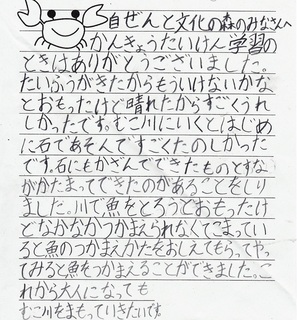 自ぜんと文化の森のみなさんへ
かんきょうたいけん学習の
ときはありがとうございました。
たいふうがきたからもういけないかな
とおもったけど晴れたからすごくうれ
しかったです。むこ川にいくとはじめ
に石であそんですごくたのしかった
です。石にもかざんでできたものとすな
がかたまってできたのがあることをしり
ました。川で魚をとろうとおもったけ
どなかなかつかまえられなくてこまってい
ると魚のつかまえかたをおしえてもらってやっ
てみると魚をつかまえることができました。こ
れから大人になっても
むこ川をまもっていきたいです。